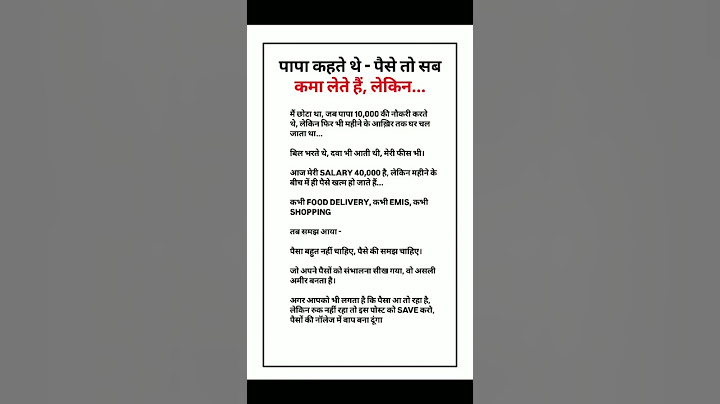 पापा कहते थे - पैसे तो सब
कमा लेते हैं, लेकिन...
मैं छोटा था, जब पापा 10,000 की नौकरी करते
थे, लेकिन फिर भी महीने के आख़िर तक घर चल
जाता था...
बिल भरते थे, दवा भी आती थी, मेरी फीस भी।
आज मेरी SALARY 40,000 है, लेकिन महीने के
बीच में ही पैसे खत्म हो जाते हैं...
कभी FOOD DELIVERY, कभी EMIS, कभी
SHOPPING
तब समझ आया -
पैसा बहुत नहीं चाहिए, पैसे की समझ चाहिए।
जो अपने पैसों को संभालना सीख गया, वो असली
अमीर बनता है।
अगर आपको भी लगता है कि पैसा आ तो रहा है,
लेकिन रुक नहीं रहा तो इस पोस्ट को SAVE करो,
पैसों की नॉलेज में बाप बना दूंगा